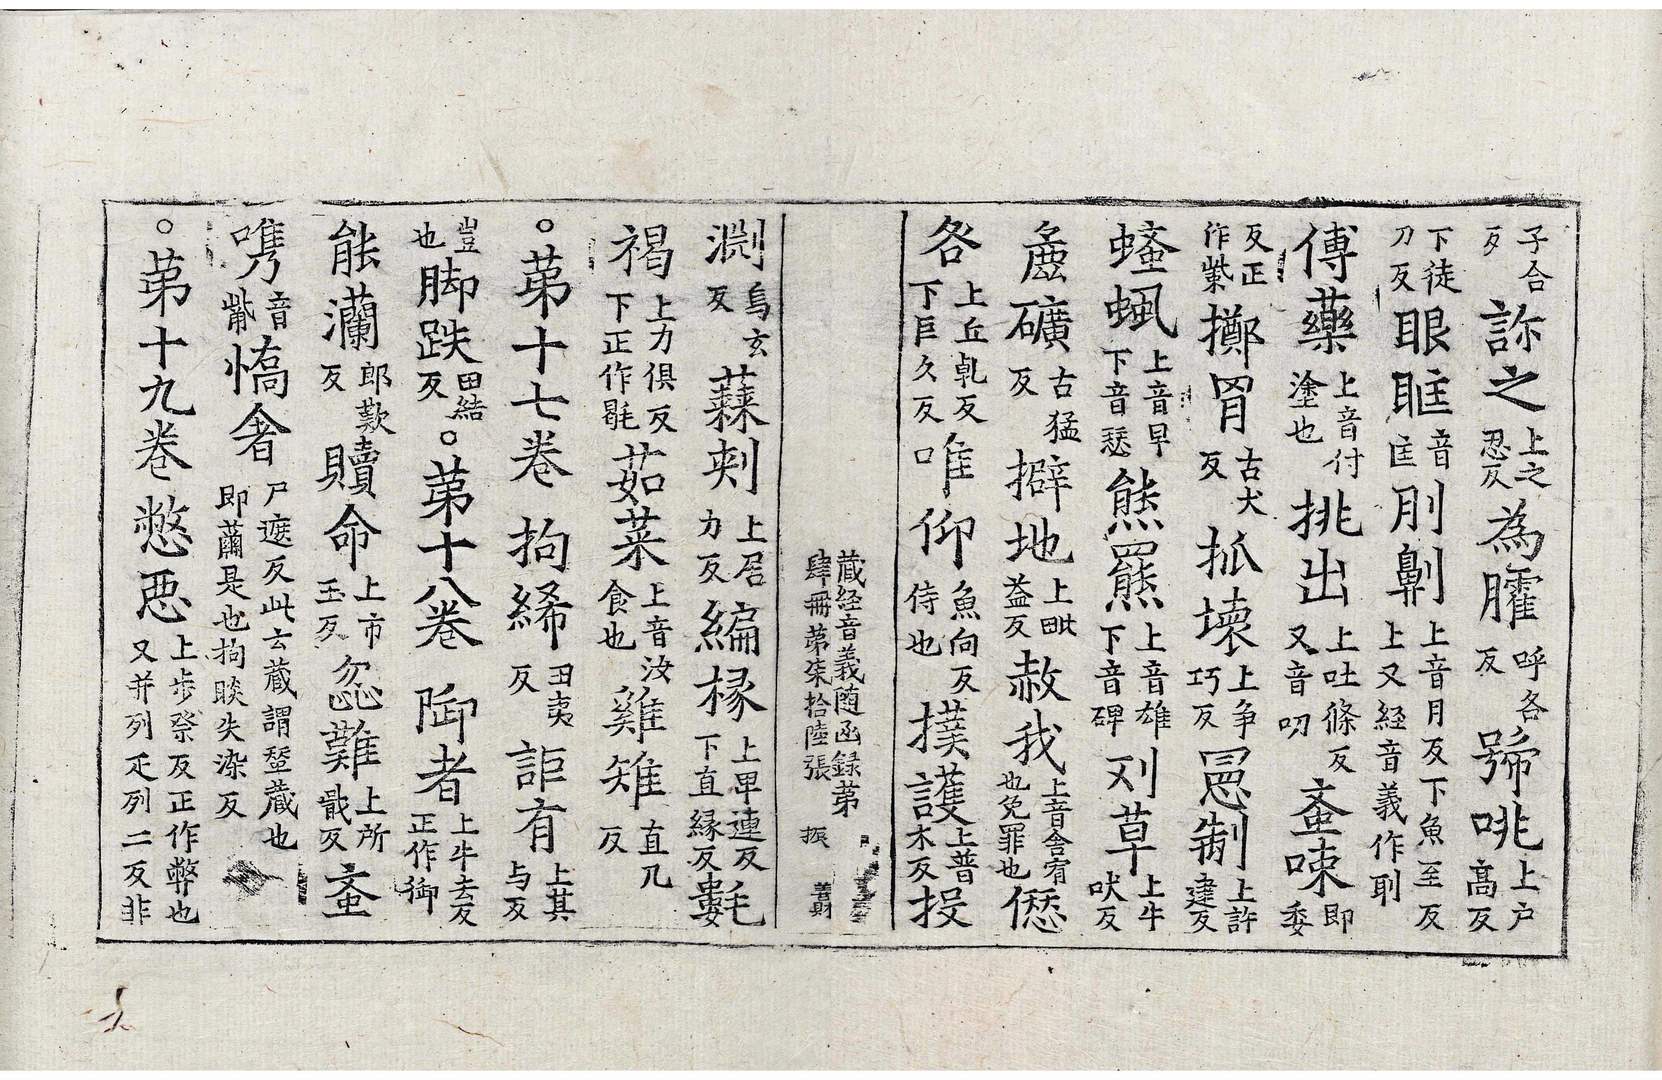 子合反訡之上之忍反為臛呼各反號咷上戶高反
下徒刀反眼眶音匡刖劓上音月反下魚至反上又経音義作刵
傅藥上音付塗也挑出上吐條反又音叨蚉㖨即委
反正作紫擲罥古犬反抓壞上爭巧反㒽制上許建反
螠蝨上音早下音瑟熊羆上音雄下音碑刈草上牛吠反
麁礦古猛反擗地上毗益反赦我上音舍宥也免罪也㒽
各上丘乹反下巨久反唯仰魚向反侍也撲護上普木反投
蔵経音義随函録第肆冊第柒拾陸張 振
渕烏玄反蕀刾上居力反編椽上卑連反下直縁反氀
褐上力俱反下正作毼茹菜上音汝食也雞雉直几反
○第十七卷 拘絺丑夷反詎有上其与反
豈也脚跌田結反○第十八卷 䘖者上牛去反正作御
㲽灡郎歎反贖命上市玉反忩難上所戢反蚉
嶲音觜憍奢尸遮反此云蔵謂蛬蔵也即蠒是也拘睒失染反
○第十九卷憋悪上步祭反正作弊也又并列疋列二反非